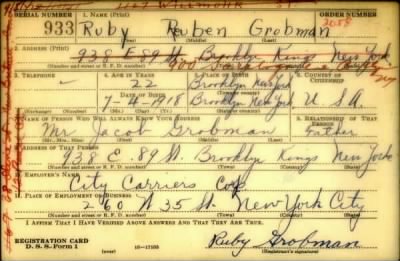 1167 Willmohr St
SERIAL NUMBER 1. NAME (Print) ORDER NUMBER
933 Ruby Reuben Grobman 2058
(First) (Middle) (Last)
2. ADDRESS (Print)
938 E 89 St. Brooklyn Kings New York
900 Saratoga
(Number and street or R. F. D. number) (Town) (County) (State)
3. TELEPHONE 4. AGE IN YEARS 5. PLACE OF BIRTH 6. COUNTRY OF CITIZENSHIP
22 Brooklyn New York
DATE OF BIRTH
7-4-1918 Brooklyn New York U.S.A.
(Exchange) (Number) (Mo.) (Day) (Yr.) (State or country)
7. NAME OF PERSON WHO WILL ALWAYS KNOW YOUR ADDRESS 8. RELATIONSHIP OF THAT PERSON
Mr. Jacob Grobman Father
(Mr., Mrs., Miss) (First) (Middle) (Last)
9. ADDRESS OF THAT PERSON
938 E. 89 St. Brooklyn Kings New York
(Number and street or R. F. D. number) (Town) (County) (State)
10. EMPLOYER'S NAME
City Carriers Corp
11. PLACE OF EMPLOYMENT OR BUSINESS
260 W 35 St. New York City
(Number and street or R. F. D. number) (Town) (County) (State)
I AFFIRM THAT I HAVE VERIFIED ABOVE ANSWERS AND THAT THEY ARE TRUE.
REGISTRATION CARD
D. S. S. Form 1 16-17105 Ruby Grobman
(Registrant's signature)